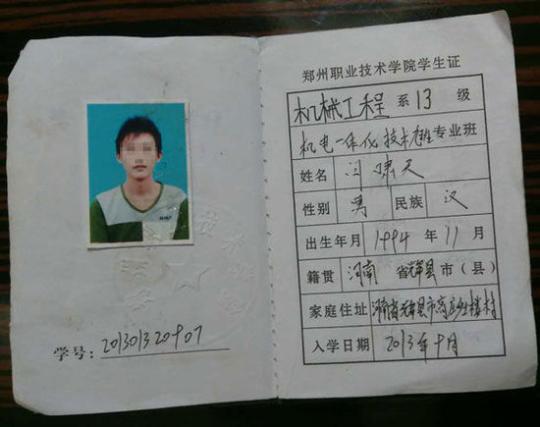 学号：201301320907
郑州职业技术学院学生证
机械工程 系 13 级
机电一体化技术 专业 班
姓名 闫啸天
性别 男 民族 汉
出生年月 1994 年 11 月
籍贯 河南 省 辉县 市（县）
家庭住址 河南省辉县市 楼村
入学日期 2013年9月